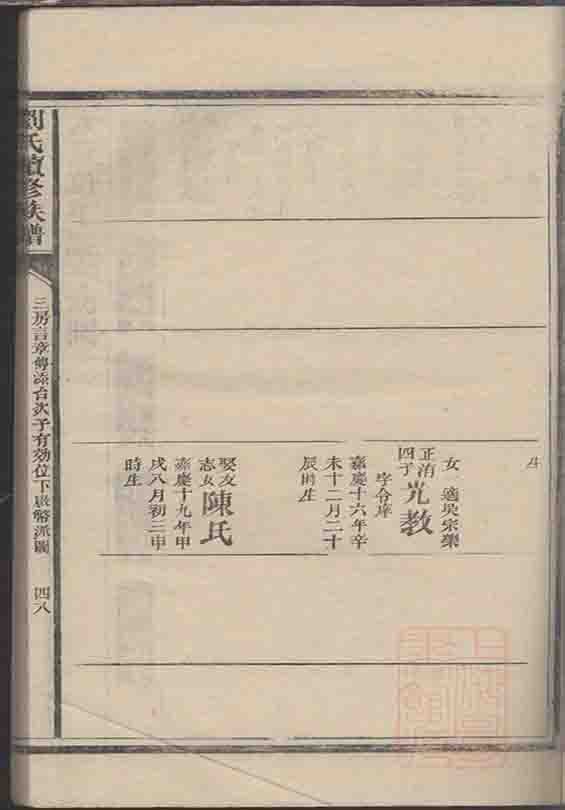 生
女一適吳宗榮
正治四子光教
字令庠
嘉慶十六年辛
未十二月二十
辰時生
娶友志女陳氏
嘉慶十九年甲
戌八月初三甲
時生
劉氏續修族譜
三房言章傳添台次子有効位下 派圖
四八